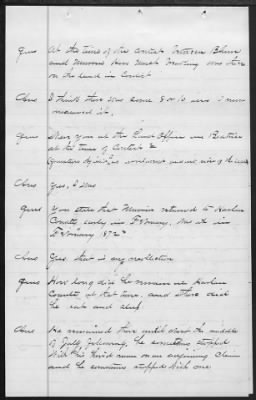 Ques At the time of the contest between Blum
and Munroe how much breaking was there
on the land in contest
Ans I think there was some 8 or 10 acres I never
measured it.
Ques Were you at the Land Office in Beatrice
at the time of Contest?
Question objected to, as
Ans Yes, I was
Ques You state that Munroe returned to Harlan
County early in February, was it in
February 1872?
Ans Yes, that is my recollection
Ques How long did he remain in Harlan
County, at that time, and where did
he eat and sleep
Ans He remained there until about the middle
of July following, he sometimes stopped
with on an adjoining claim
and he sometimes stopped with one